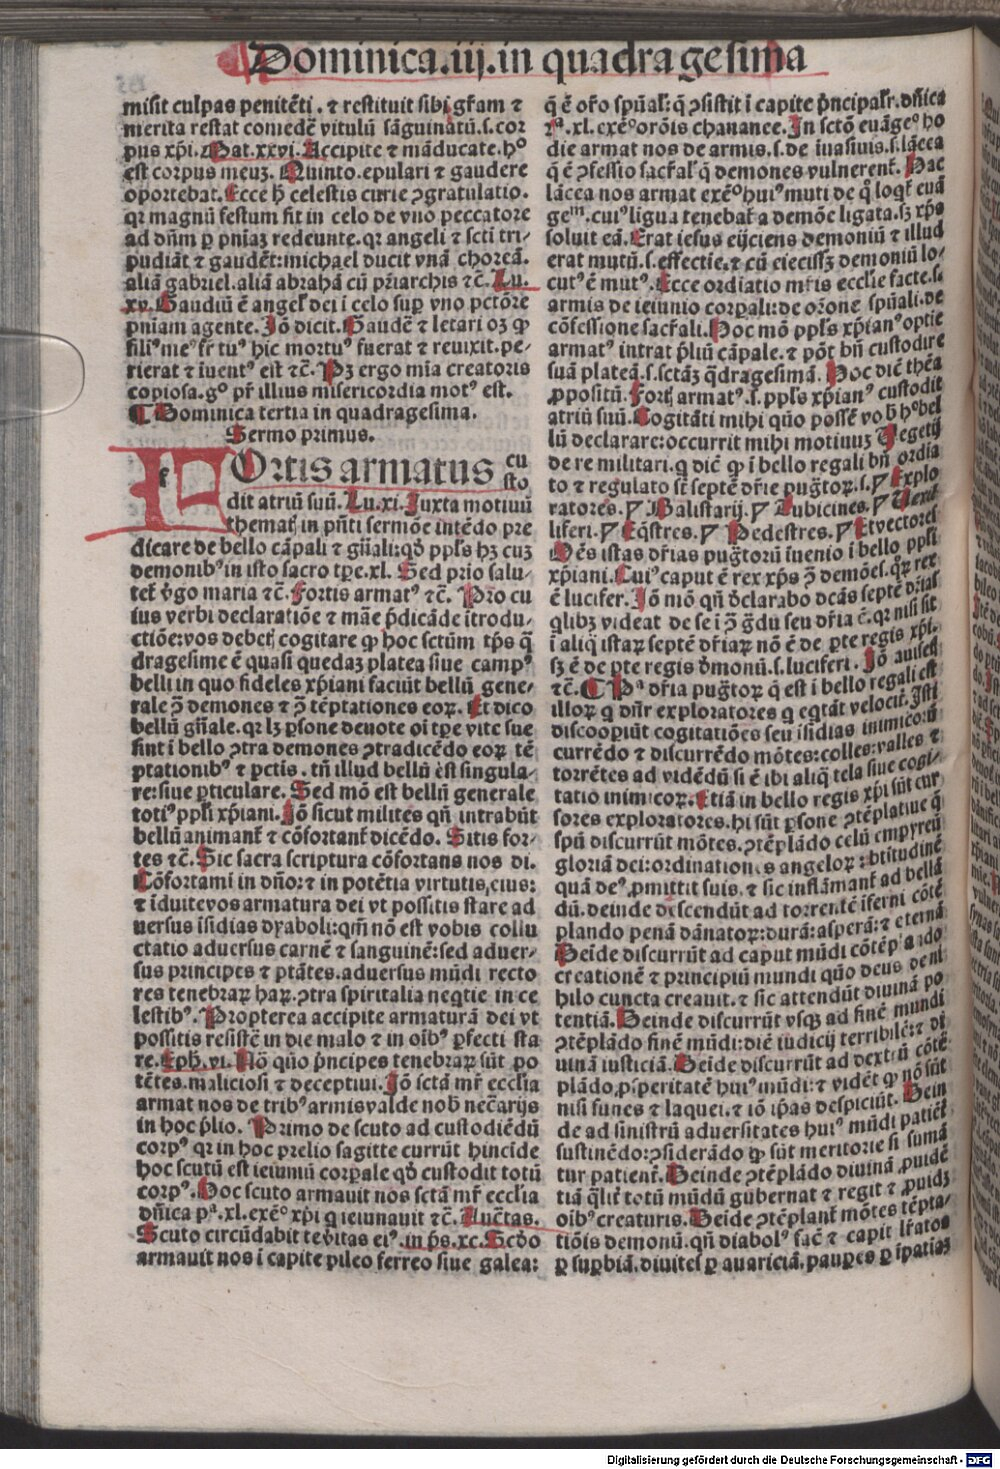 Dominica.iij.in quadragesima
misit culpas penitẽti. ⁊ restituit sibi gr̃am ⁊
merita restat comedẽ vitulũ sãguinatũ.s.cor
pus xp̃i. Mat.xxvi. Accipite ⁊ mãducate.hº
est corpus meuȝ. Quinto.epulari ⁊ gaudere
oportebat. Ecce h̃ celestis curie ꝯgratulatio.
qꝛ magnũ festum fit in celo de vno peccatore
ad dñm ꝑ pñiaȝ redeunte.qꝛ angeli ⁊ scti tri⸗
pudiãt ⁊ gaudẽt:michael ducit vnã choreã.
aliã gabriel.aliã abrahã cũ pr̃iarchis ⁊c̃. Lu.
xv. Gaudiũ ẽ angel' dei i celo suꝑ vno pctõre
pniam agente. Jõ dicit. Gaudẽ ⁊ letari oȝ ꝙ
fili⁹ me⁹ fr̃ tu⁹ hic mortu⁹ fuerat ⁊ reuixit.pe⸗
rierat ⁊ iuent⁹ est ⁊c̃. Pȝ ergo mia creatoris
copiosa.gº pr̃ illius misericordia mot⁹ est.
¶ Dominica tertia in quadragesima.
Sermo primus.
FOrtis armatus cu
sto
dit atriũ suũ. Lu.xi. Juxta motiuũ
themat̃ in pñti sermõe intẽdo pre
dicare de bello cãpali ⁊ gñali:qđ ppl's hȝ cuȝ
demonib⁹ in isto sacro tꝑe.xl. Sed prio salu⸗
tet̃ v̾go maria ⁊c̃. Fortis armat⁹ ⁊c̃. Pro cu
ius verbi declaratiõe ⁊ mãe p̃dicãde itrodu⸗
ctiõe:vos debet̃ cogitare ꝙ hoc sctũm tp̃s q̃
dragesime ẽ quasi quedaȝ platea siue camp⁹
belli in quo fideles xp̃iani faciũt bellũ gene⸗
rale ꝯ̃ demones ⁊ ꝯ̃ tẽptationes eoꝝ. Et dico
bellũ gñale.qꝛ lȝ ꝑsone deuote oi tꝑe vite sue
sint i bello ꝯtra demones ꝯtradicẽdo eoꝝ tẽ
ptationib⁹ ⁊ pctis. tñ illud bellũ est singula⸗
re:siue ꝑticulare. Sed mõ est bellũ generale
toti⁹ ppl'i xp̃iani. Jõ sicut milites qñ intrabũt
bellũ animant̃ ⁊ cõfortant̃ dicẽdo. Sitis for⸗
tes ⁊c̃. Sic sacra scriptura cõfortans nos di.
Cõfortami in dño:⁊ in potẽtia virtutis eius:
⁊ iduitevos armatura dei vt possitis stare ad
uersus isidias dyaboli:qm̃ nõ est vobis collu
ctatio aduersus carnẽ ⁊ sanguinẽ:sed aduer⸗
sus principes ⁊ ptãtes.aduersus mũdi recto
res tenebraꝝ haꝝ.ꝯtra spiritalia neqtie in ce
lestib⁹. Propterea accipite armaturã dei vt
possitis resistẽ in die malo ⁊ in oib⁹ ꝑfecti sta
re. Eph̃.vi. Nõ quo p̃ncipes tenebraꝝ sũt po
tẽtes.maliciosi ⁊ deceptiui. Jõ sctã mr̃ ecclia
armat nos de trib⁹ armis valde nob̃ necãrijs
in hoc p̃lio. Primo de scuto ad custodiẽdũ
corp⁹ qꝛ in hoc prelio sagitte currũt hincide
hoc scutũ est ieiuniũ corpale qđ custodit totũ
corp⁹. Hoc scuto armauit nos sctã mr̃ ecclia
dñica pª.xl.exẽº xp̃i q ieiunauit ⁊c̃. Auctas.
Scuto circũdabit te v̾itas ei⁹.in p̃s.xc. Scd̾o
armauit nos i capite pileo ferreo siue galea:
q̃ ẽ or̃o spũal':q̃ ꝯsistit i capite p̃ncipalr̃.dñica
rª.xl.exẽº orõis chananee. In sctõ euãgeº ho
die armat nos de armis.s.de iuasiuis.s.lãcea
q̃ ẽ ꝯfessio sacr̃al' q̃ demones vulnerent̃. Hac
lãcea nos armat exẽº hui⁹ muti de q̃ loqt̃ euã
geᵐ.cui⁹ ligua tenebat̃ a demõe ligata.sȝ xp̃s
soluit eã. Erat iesus eijciens demoniũ ⁊ illud
erat mutũ.s.effectie.⁊ cũ eiecissȝ demoniũ lo⸗
cut⁹ ẽ mut⁹. Ecce ordiatio mr̃is ecclie facte.s.
armis de ieiunio corpali:de or̃one spũali.de
cõfessione sacr̃ali. Hoc mõ ppl's xp̃ian⁹ optie
armat⁹ intrat p̃liũ cãpale.⁊ põt bñ custodire
suã plateã.s.sctãȝ q̃dragesimã. Hoc dič thẽa
ꝓpositũ. Fort̃ armat⁹.s.ppl's xp̃ian⁹ custodit
atriũ suũ. Cogitãti mihi quo possẽ vob̃ hº bel
lũ declarare:occurrit mihi motiuuȝ Vegetij
de re militari.q dič ꝙ i bello regali bñ ordia
to ⁊ regulato st̃ septẽ dr̃ie pug̃toꝝ.s. Explo
ratores. Balistarij. Tubicines. Vexil
liferi. Eq̃stres. Pedestres. Et vectores
Oẽs istas dr̃ias pug̃torũ iuenio i bello ppl'i
xp̃iani. Cui⁹ caput ẽ rex xp̃s ꝯ̃ demões.qꝝ rex
ẽ lucifer. Jõ mõ qñ d̾clarabo dcãs septẽ dr̃ias
qlibȝ videat de se i ꝯ̃ g̃du seu dr̃ia ẽ.qꝛ nisi sit
i aliq̃ istaꝝ septẽ dr̃iaꝝ nõ ẽ de ꝑte regis xp̃i.
sȝ ẽ de ꝑte regis d̾monũ.s.luciferi. Jõ auisest̃
⁊c̃. ¶ Pª dr̃ia pug̃toꝝ q̃ est i bello regali est
illoꝝ q dñr exploratores q eqtãt velocit̃. Isti
discoopiũt cogitatiões seu isidias inimicorũ
currẽdo ⁊ discurrẽdo mõtes:colles:valles ⁊
torrẽtes ad vidẽdũ si ẽ ibi aliq̃ tela siue cogi⸗
tatio inimicoꝝ. Etiã in bello regis xp̃i sũt cur
sores exploratores.hi sũt ꝑsone ꝯtẽplatiue q̃
spũ discurrũt mõtes.ꝯtẽplãdo celũ empyreũ
gloriã dei:ordinationes angeloꝝ:btitudinẽ
quã de⁹ ꝓmittit suis.⁊ sic inflãmant̃ ad bellã
dũ.deinde descendũt ad torrentẽ iferni cõtẽ
plando penã dãnatoꝝ:durã:asperã:⁊ eternã
Deide discurrũt ad caput mũdi cõtẽplãdo
creationẽ ⁊ principiũ mundi quo deus de ni
hilo cuncta creauit.⁊ sic attendũt diuinã po
tentiã. Deinde discurrũt vsqȝ ad finẽ mundi
ꝯtẽplãdo finẽ mũdi:diẽ iudicij terribilẽ:⁊ di
uinã iusticiã. Deide discurrũt ad dextrũ cõtẽ
plãdo,ꝓsperitatẽ hui⁹ mũdi:⁊ vidẽt ꝙ nõ sũt
nisi funes ⁊ laquei.⁊ iõ ip̃as despiciũt. Dein
de ad sinistrũ aduersitates hui⁹ mũdi patiẽt̃
sustinẽdo:ꝯsiderãdo ꝙ sũt meritorie si sumã
tur patient̃. Deinde ꝯtẽplãdo diuinã ꝓuidẽ
tiã q̃lit̃ totũ mũdũ gubernat ⁊ regit ⁊ ꝓuidȝ
oib⁹ creaturis. Deide ꝯtẽplant̃ mõtes tẽpta⸗
tiõis demonũ.qñ diabol⁹ fac̃ ⁊ capit lr̃atos
ꝑ suꝑbiã.diuites ꝑ auariciã.pauꝑes ꝑ ipatiaȝ
Digitalisierung gefördert durch die Deutsche Forschungsgemeinschaft - DFG